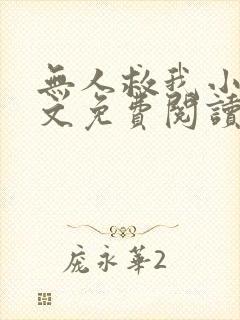 無人救我小
文免費閱讀
庞永華2